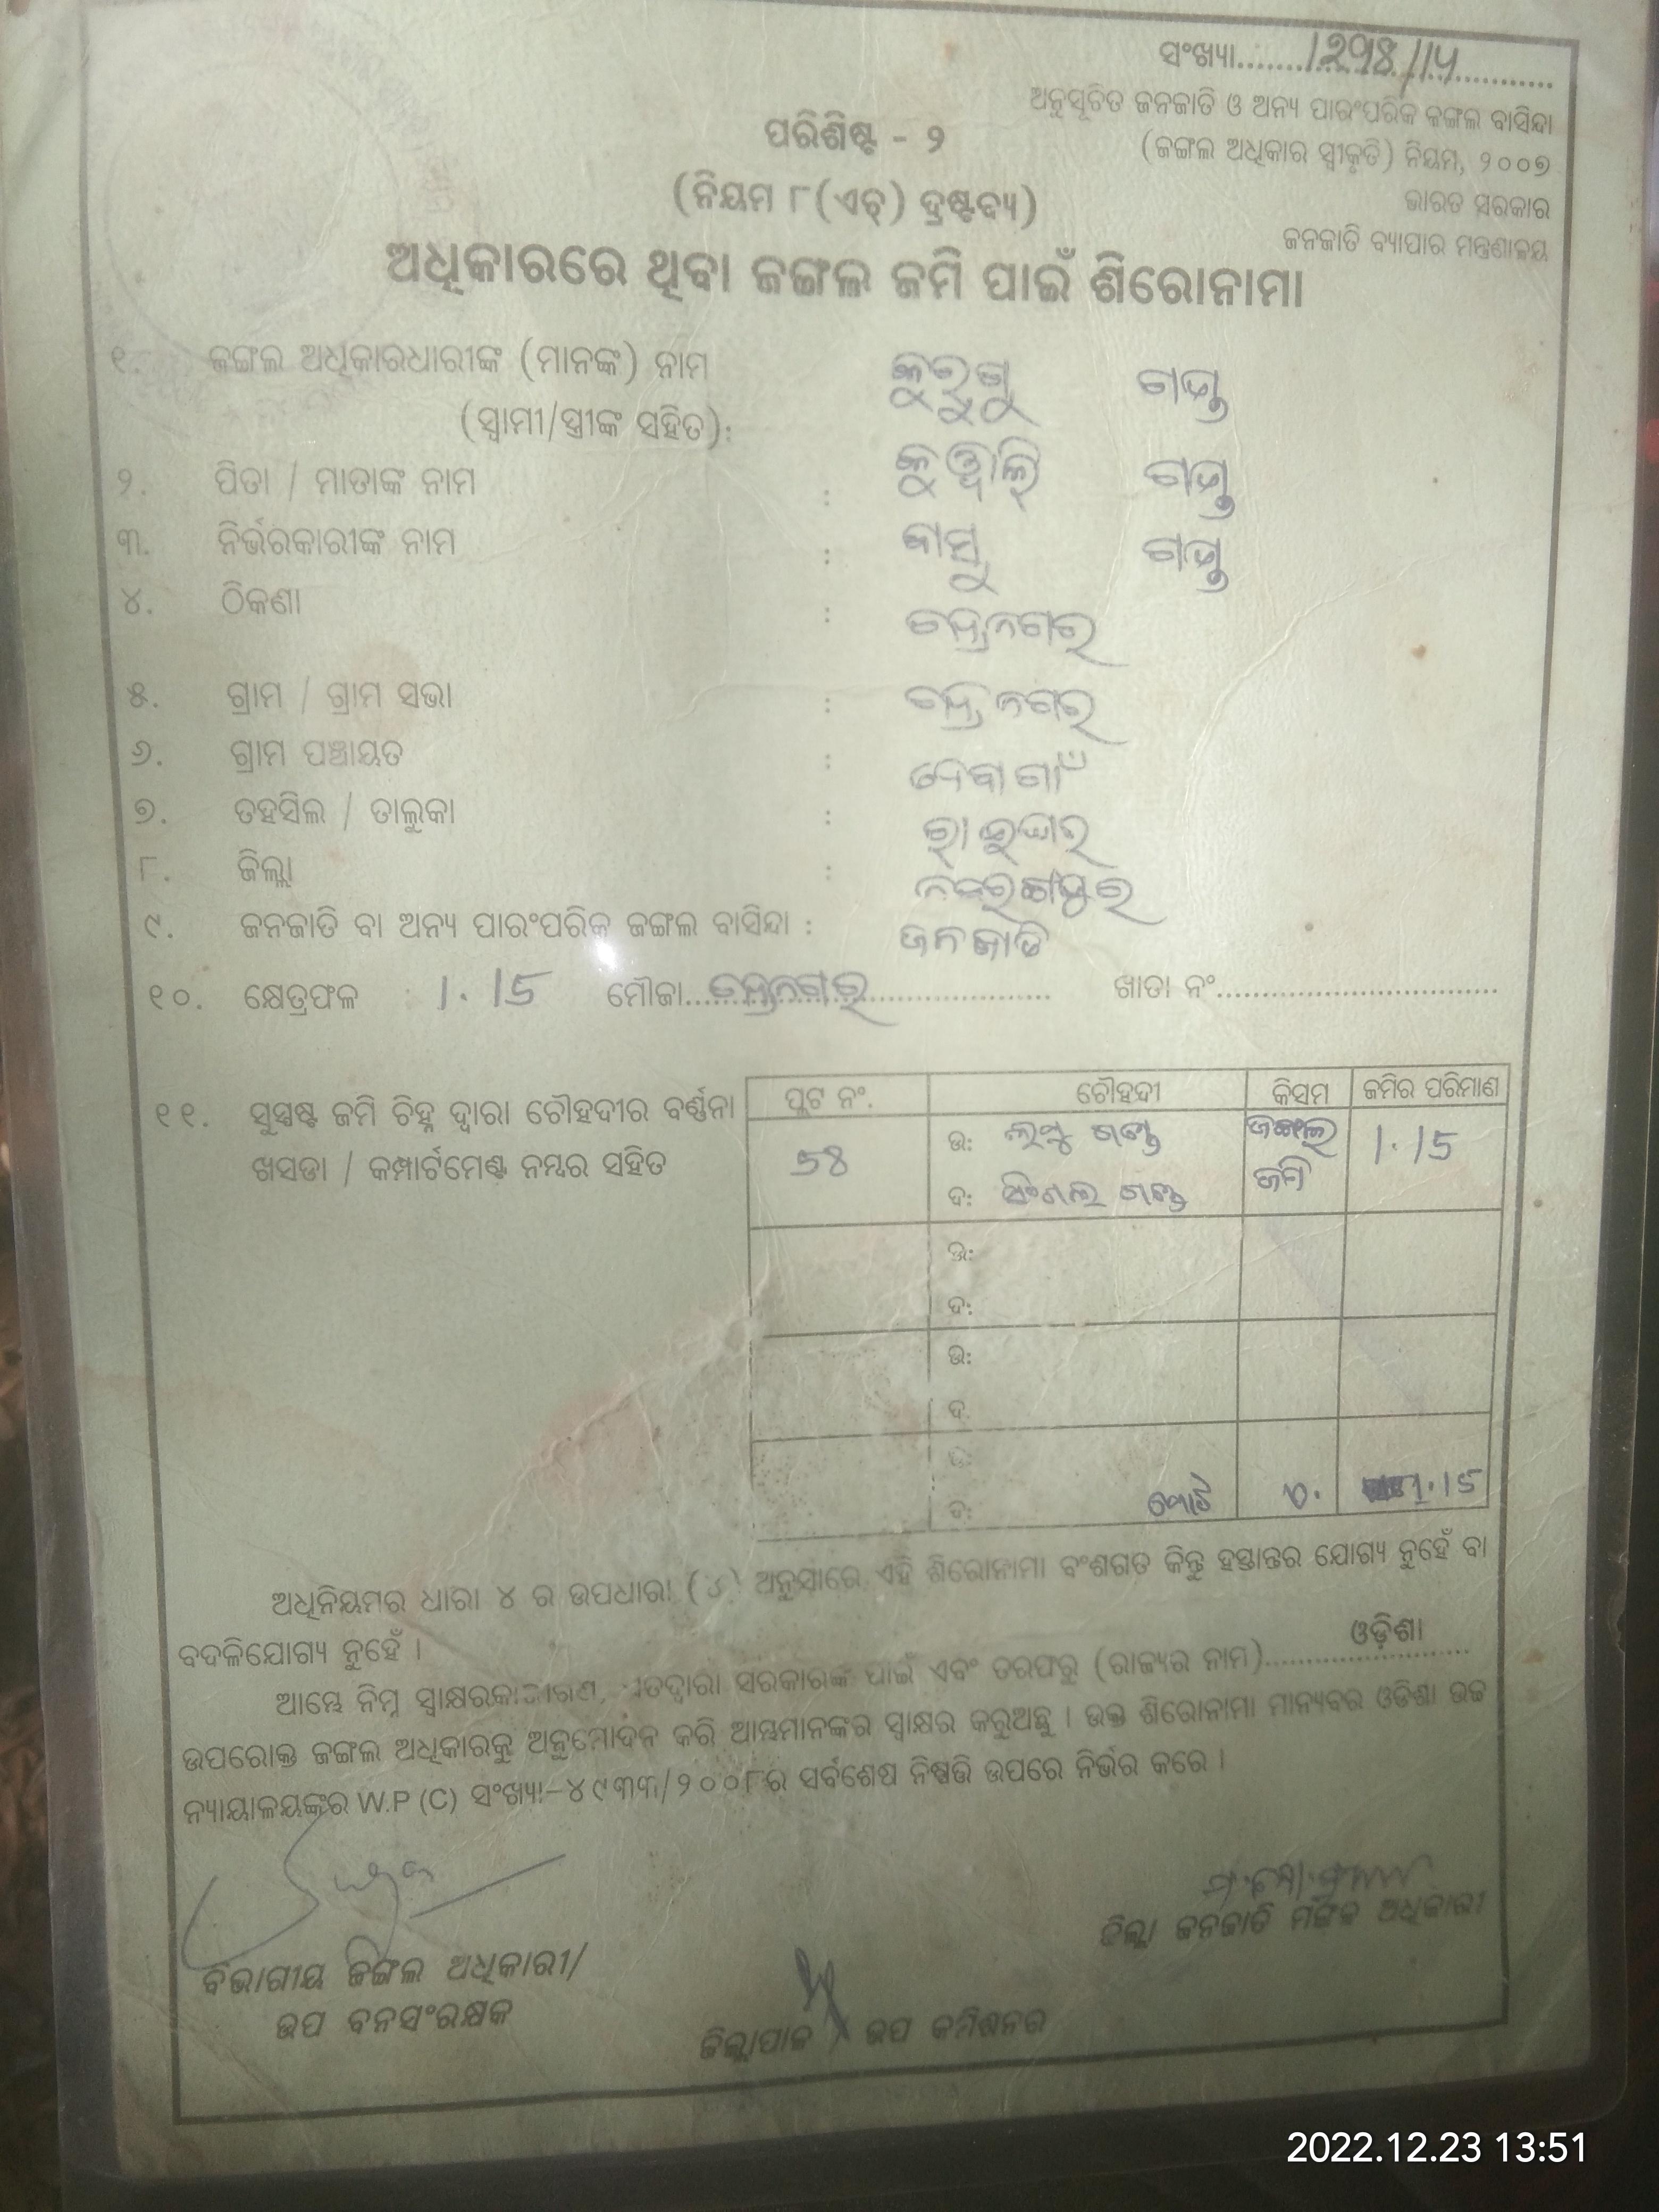 ସଂଖ୍ୟା..............................
ଅନୁସୂଚିତ ଜନଜାତି ଓ ଅନ୍ୟ ପାରଂପରିକ ଜଙ୍ଗଲ ବାସିନ୍ଦା
(ଜଙ୍ଗଲ ଅଧିକାର ସ୍ୱୀକୃତି) ନିୟମ, ୨୦୦୭
ଭାରତ ସରକାର
ଜନଜାତି ବ୍ୟାପାର ମନ୍ତ୍ରଣାଳୟ
ପରିଶିଷ୍ଟ - ୨
(ନିୟମ ୮(ଏଚ୍) ଦ୍ରଷ୍ଟବ୍ୟ)
ଅଧିକାରରେ ଥିବା ଜଙ୍ଗଲ ଜମି ପାଇଁ ଶିରୋନାମା
୧. ଜଙ୍ଗଲ ଅଧିକାରଧାରୀଙ୍କ (ମାନଙ୍କ) ନାମ
(ସ୍ୱାମୀ/ସ୍ତ୍ରୀଙ୍କ ସହିତ):
୨. ପିତା / ମାତାଙ୍କ ନାମ :
୩. ନିର୍ଭରକାରୀଙ୍କ ନାମ :
୪. ଠିକଣା :
୫. ଗ୍ରାମ / ଗ୍ରାମ ସଭା :
୬. ଗ୍ରାମ ପଞ୍ଚାୟତ :
୭. ତହସିଲ / ତାଲୁକା : ରାଇଘର
୮. ଜିଲ୍ଲା :
୯. ଜନଜାତି ବା ଅନ୍ୟ ପାରଂପରିକ ଜଙ୍ଗଲ ବାସିନ୍ଦା : ଜନଜାତି
୧୦. କ୍ଷେତ୍ରଫଳ : 1.15 ମୌଜା.............................. ଖାତା ନଂ..............................
୧୧. ସୁସ୍ପଷ୍ଟ ଜମି ଚିହ୍ନ ଦ୍ୱାରା ଚୌହଦୀର ବର୍ଣ୍ଣନା
ଖସଡା / କମ୍ପାର୍ଟମେଣ୍ଟ ନମ୍ବର ସହିତ
ପ୍ଲଟ ନଂ. ଚୌହଦୀ କିସମ ଜମିର ପରିମାଣ
58 ଉ: ଜଙ୍ଗଲ 1.15
ଦ: ଜମି
ଉ:
ଦ:
ଉ:
ଦ
ଉ:
ଦ: 1.15
ଅଧିନିୟମର ଧାରା ୪ ର ଉପଧାରା (୪) ଅନୁସାରେ ଏହି ଶିରୋନାମା ବଂଶଗତ କିନ୍ତୁ ହସ୍ତାନ୍ତର ଯୋଗ୍ୟ ନୁହେଁ ବା
ବଦଳିଯୋଗ୍ୟ ନୁହେଁ ।
ଆମ୍ଭେ ନିମ୍ନ ସ୍ୱାକ୍ଷରକାରୀଗଣ, ଏତଦ୍ୱାରା ସରକାରଙ୍କ ପାଇଁ ଏବଂ ତରଫରୁ (ରାଜ୍ୟର ନାମ)....ଓଡ଼ିଶା....
ଉପରୋକ୍ତ ଜଙ୍ଗଲ ଅଧିକାରକୁ ଅନୁମୋଦନ କରି ଆମ୍ଭମାନଙ୍କର ସ୍ୱାକ୍ଷର କରୁଅଛୁ । ଉକ୍ତ ଶିରୋନାମା ମାନ୍ୟବର ଓଡିଶା ଉଚ୍ଚ
ନ୍ୟାୟାଳୟଙ୍କର W.P (C) ସଂଖ୍ୟା-୪୯୩୩/୨୦୦୮ର ସର୍ବଶେଷ ନିଷ୍ପତ୍ତି ଉପରେ ନିର୍ଭର କରେ ।
ବିଭାଗୀୟ ଜଙ୍ଗଲ ଅଧିକାରୀ/
ଉପ ବନସଂରକ୍ଷକ
ଜିଲ୍ଲାପାଳ / ଉପ କମିଶନର
ଜିଲ୍ଲା ଜନଜାତି ମଙ୍ଗଳ ଅଧିକାରୀ
2022.12.23 13:51